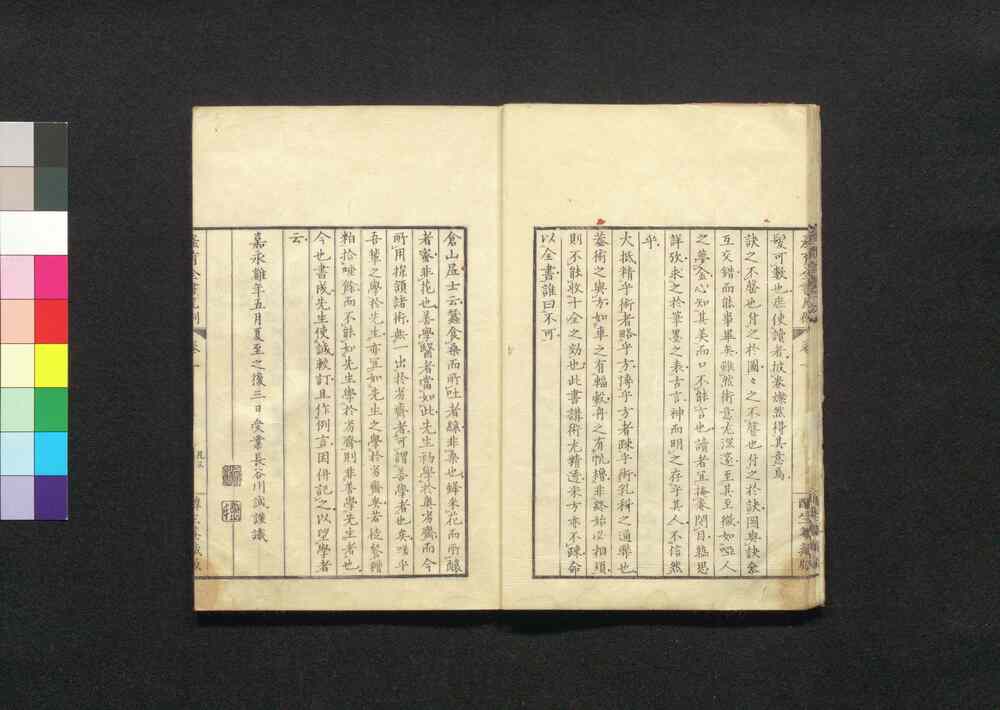 髮可數也庶使讀者披卷燦然得其意焉
訣之不罄也付之於圖々之不罄也付之於訣圖與訣參
互交錯而能事畢矣雖然術意尤深邃至其至微如啞人
之夢金心知其美而口不能言也讀者宜掩卷閉目熟思
詳攷求之於筆墨之表古言神而明之存乎其人不信然
乎
大抵精乎術者略乎方專乎方者疎乎術乳科之通弊也
蓋術之與方如車之有輻轂舟之有帆櫓非終始必相須
則不能收十全之効也此書講術尤精透采方亦不疎命
以全書誰曰不可
倉山居士云蠶食桑而所吐者絲非桑也蜂采花而所釀
者蜜非花也善學醫者當如此先生初學於奥劣齋而今
所用探頷諸術無一出於劣齋者可謂善學者也矣嗟乎
吾輩之學於先生亦宜如先生之學於劣齋矣若徒餐糟
粕拾唾餘而不能如先生學於劣齋則非善學先生者也
今也書成先生使誠校訂且作例言因併記之以望學者
云
嘉永雞年五月夏至之後三日 受業長谷川誠謹識
卷一